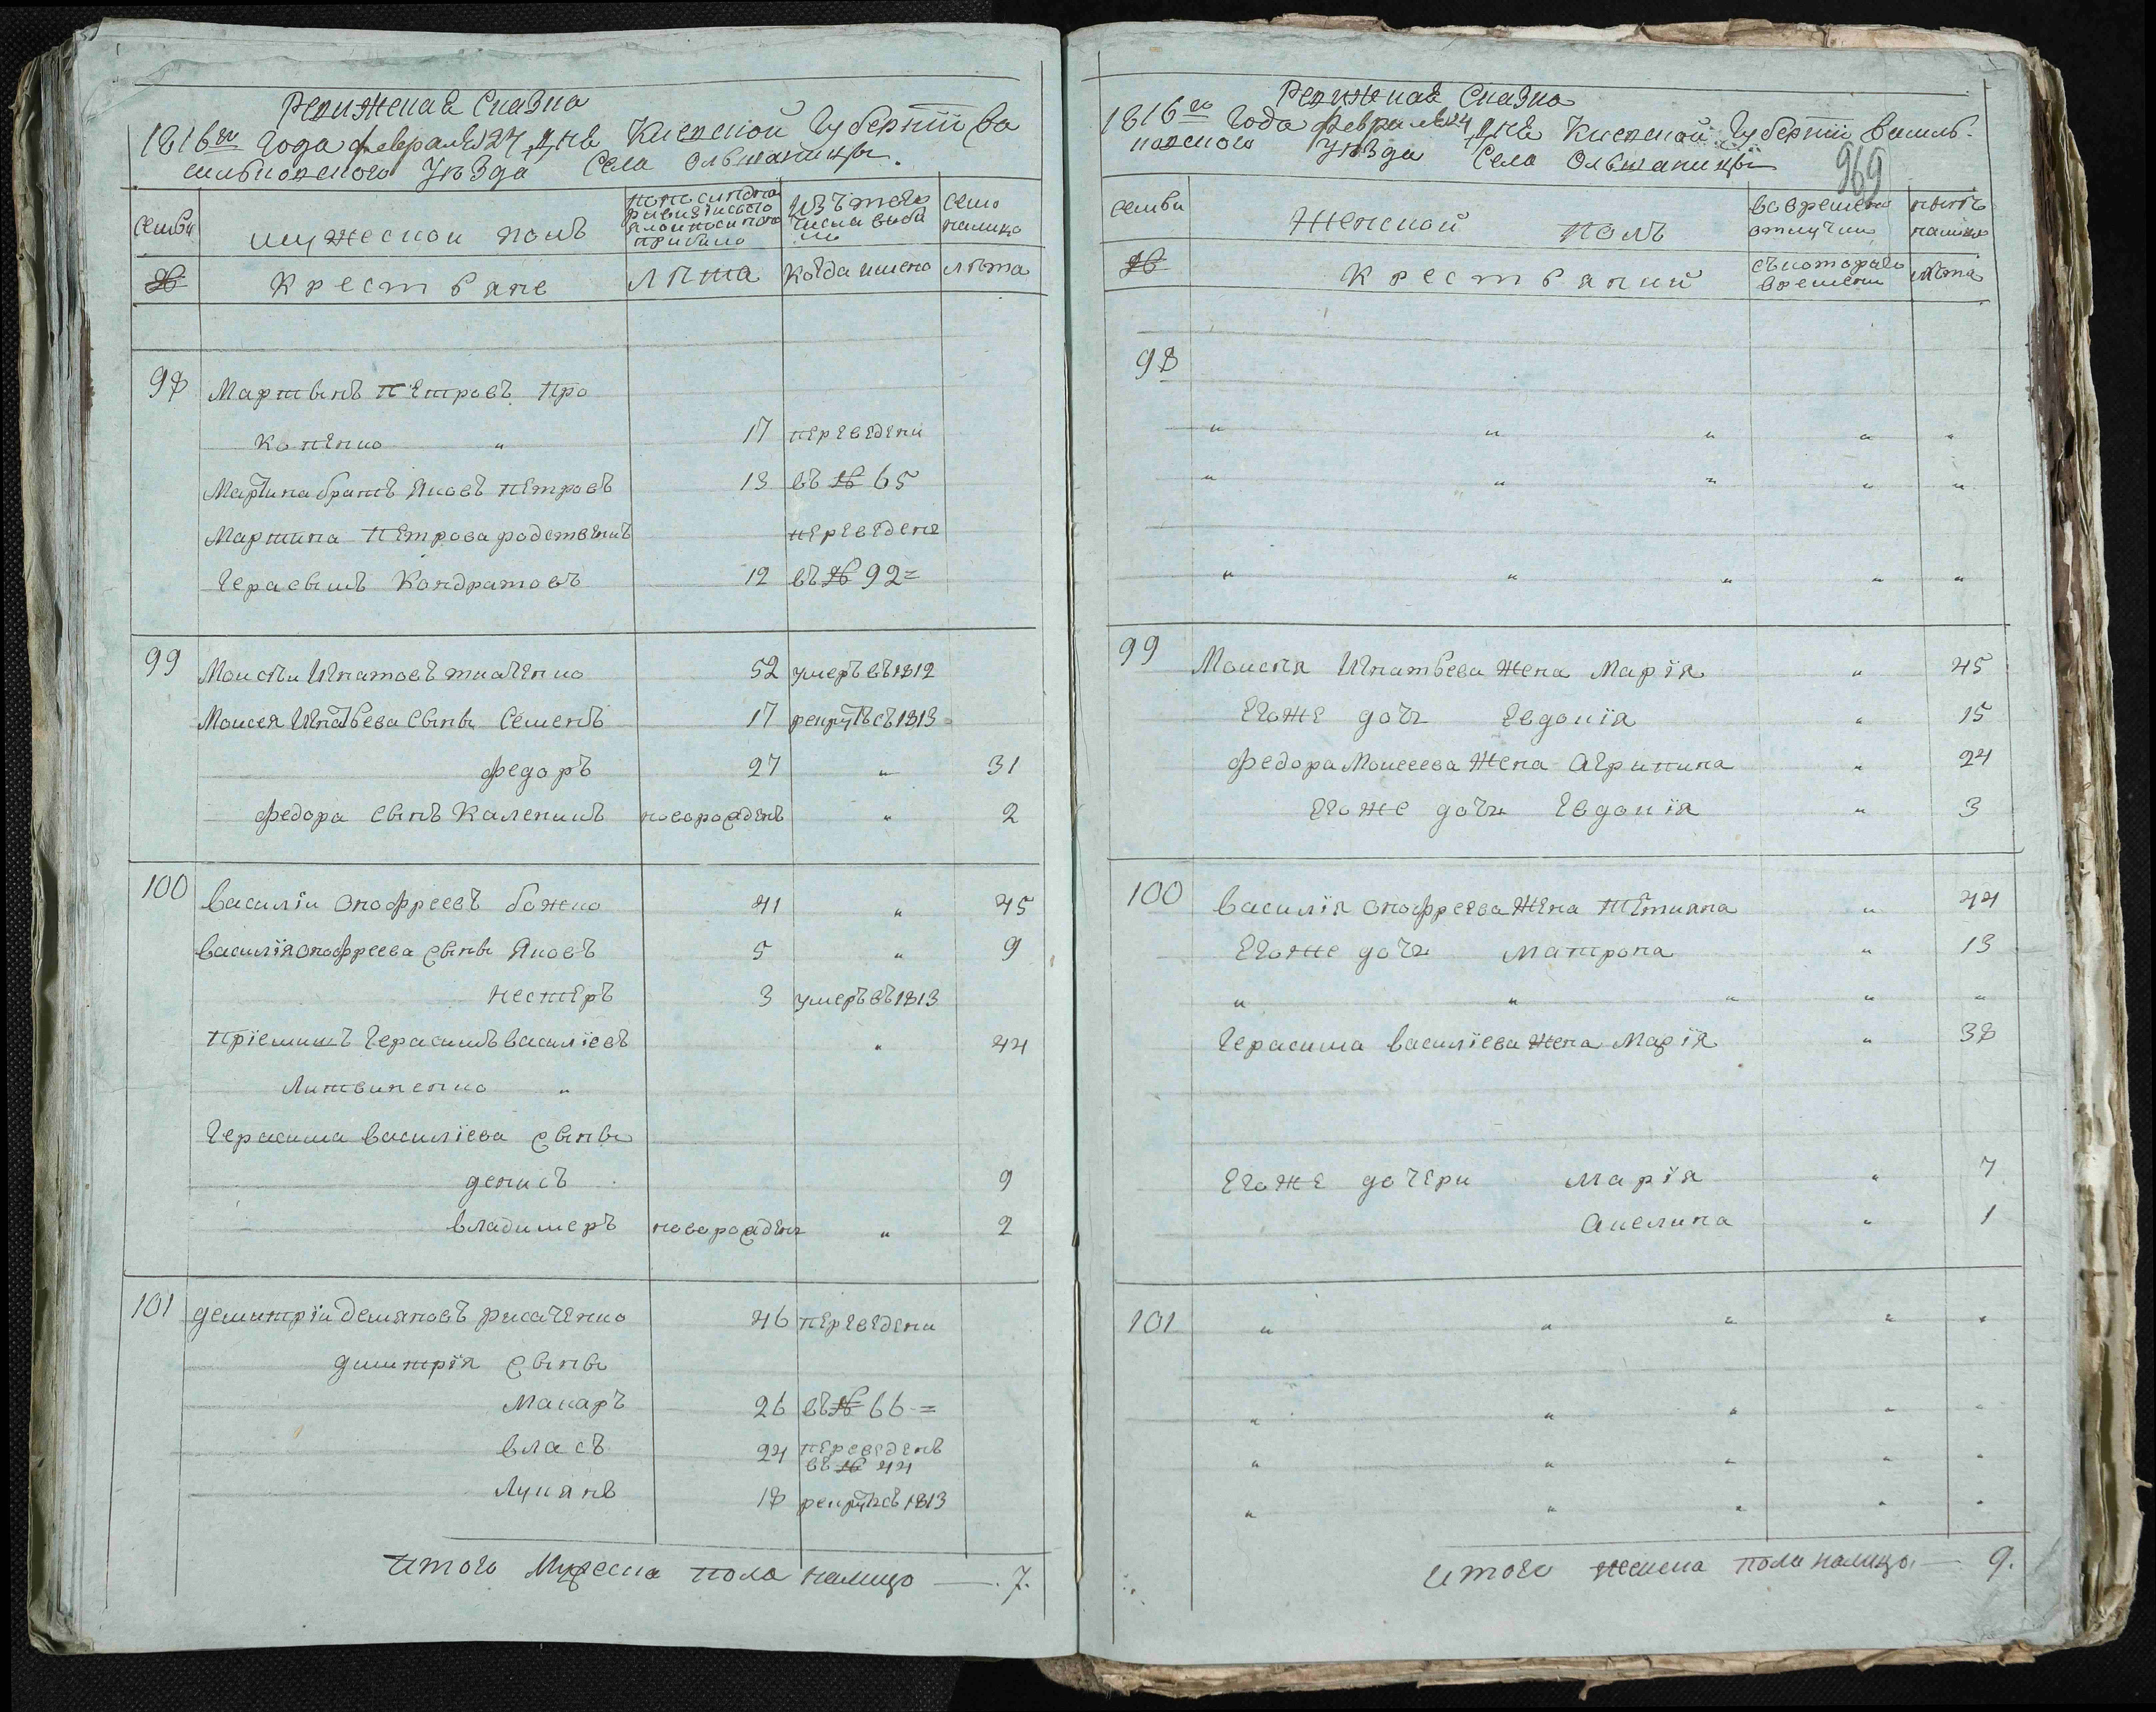 Ревижская Сказка
1816го Года февраля 24 дня Киевской Губернїи ва
сильковского Уѣзда Села Ольшаници.
Семьи
мужеской полъ
изътого числа выбыло
налицо
№
Крестьяне
Лѣта
когда имено
лѣта
98 Мартынъ Петровъ Про
копенко " 17 переведени
Мартина братъ Яковъ Петровъ 13 въ № 65
Мартина Петрова родственикъ переведенъ
Герасымъ Кондратовъ 12 въ № 92=
99 Моисѣи Игнатовъ ткаченко 52 умеръ въ 1812
Моисея Игнатьева сыны Семенъ 17 рекрутъ съ 1813
Федоръ 27 " 31
Федора сынъ Каленикъ новорожденъ " 2
100 Василїи Онофреевъ божко 41 " 45
Василїя Онофреева сыны Яковъ 5 " 9
Нестеръ 3 умеръ въ 1813
Прїемишъ Герасимъ Василїевъ " 44
Литвиненко "
Герасима Василїева сыны
денисъ 9
владимеръ новорожденъ " 2
101 демитрїи демяновъ рисаченко 46 переведени
димитрїя сыны
Макаръ 26 въ № 66=
власъ 24 переведенъ
въ № 44
Лукянъ 18 рекрутъ съ 1813
Итого Мужеска пола налицо — 7.
Ревижская Сказка
1816го Года февраля 24 дня Киевской Губернїи Василь
ковского Уѣзда Села Ольшаници
969
Семьи
Женской Полъ
вовремено отлучки
нынѣ налицо
№
Крестьяний
съкоторого времени
лѣта
98
" " " " "
" " " " "
" " " " "
99 Моисея Игнатьева жена Марїя " 45
Егоже дочь Евдокїя " 15
Федора Моисеева жена Агрипина " 24
Егоже дочь Евдокїя " 3
100 Василїя Онофреева жена Тетияна " 44
Егоже дочь Матрона " 13
" " " " "
Герасима Василїева жена Марїя " 38
Егоже дочери Марїя " 7
Акелина " 1
101 " " " " "
" " " " "
" " " " "
" " " " "
Итого женска пола налицо — 9.